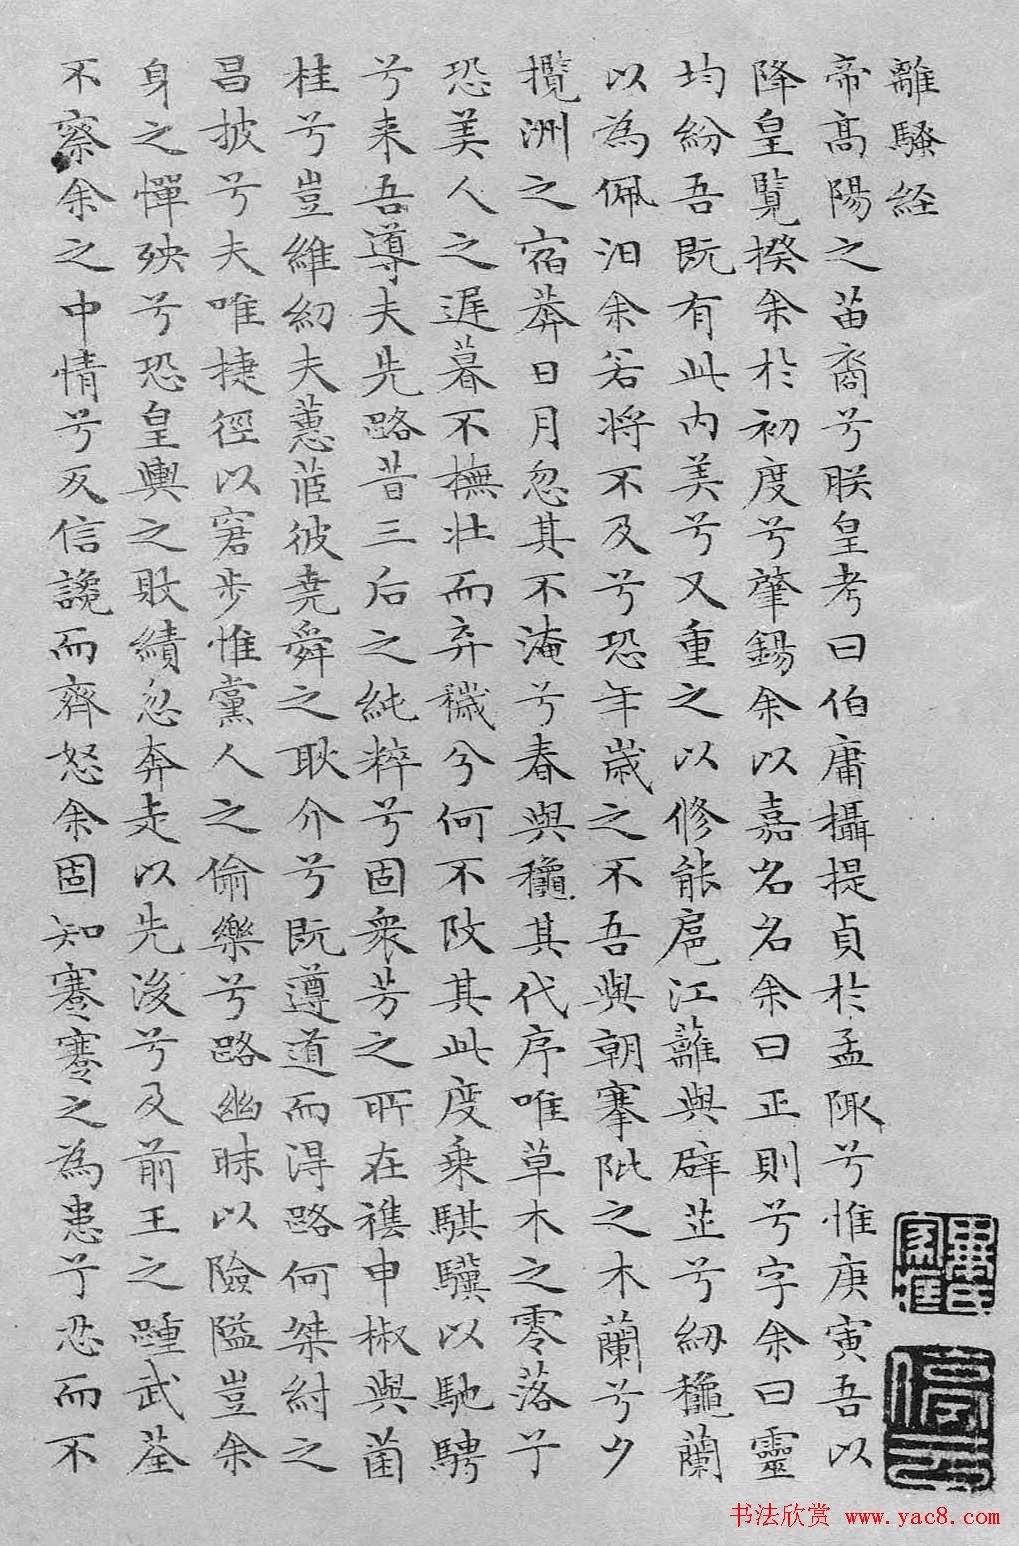 離騷経
帝高陽之苗裔兮朕皇考曰伯庸攝提貞於孟陬兮惟庚寅吾以
降皇覽揆余於初度兮肇錫余以嘉名名余曰正則兮字余曰靈
均紛吾既有此内美兮又重之以修能扈江蘺與辟芷兮紉龝蘭
以為佩汩余若將不及兮恐年歲之不吾與朝搴阰之木蘭兮夕
攬洲之宿莽日月忽其不淹兮春與龝其代序唯草木之零落兮
恐美人之遲暮不撫壯而弃穢兮何不改其此度乘騏驥以馳騁
兮来吾導夫先路昔三后之純粹兮固衆芳之所在雜申椒與菌
桂兮豈維紉夫蕙茝彼堯舜之耿介兮既遵道而得路何桀紂之
昌披兮夫唯捷徑以窘步惟黨人之偷樂兮路幽昧以險隘豈余
身之憚殃兮恐皇輿之敗績忽奔走以先後兮及前王之踵武荃
不察余之中情兮反信讒而齊怒余固知蹇蹇之為患兮忍而不
停云
书法欣赏 www.yac8.com